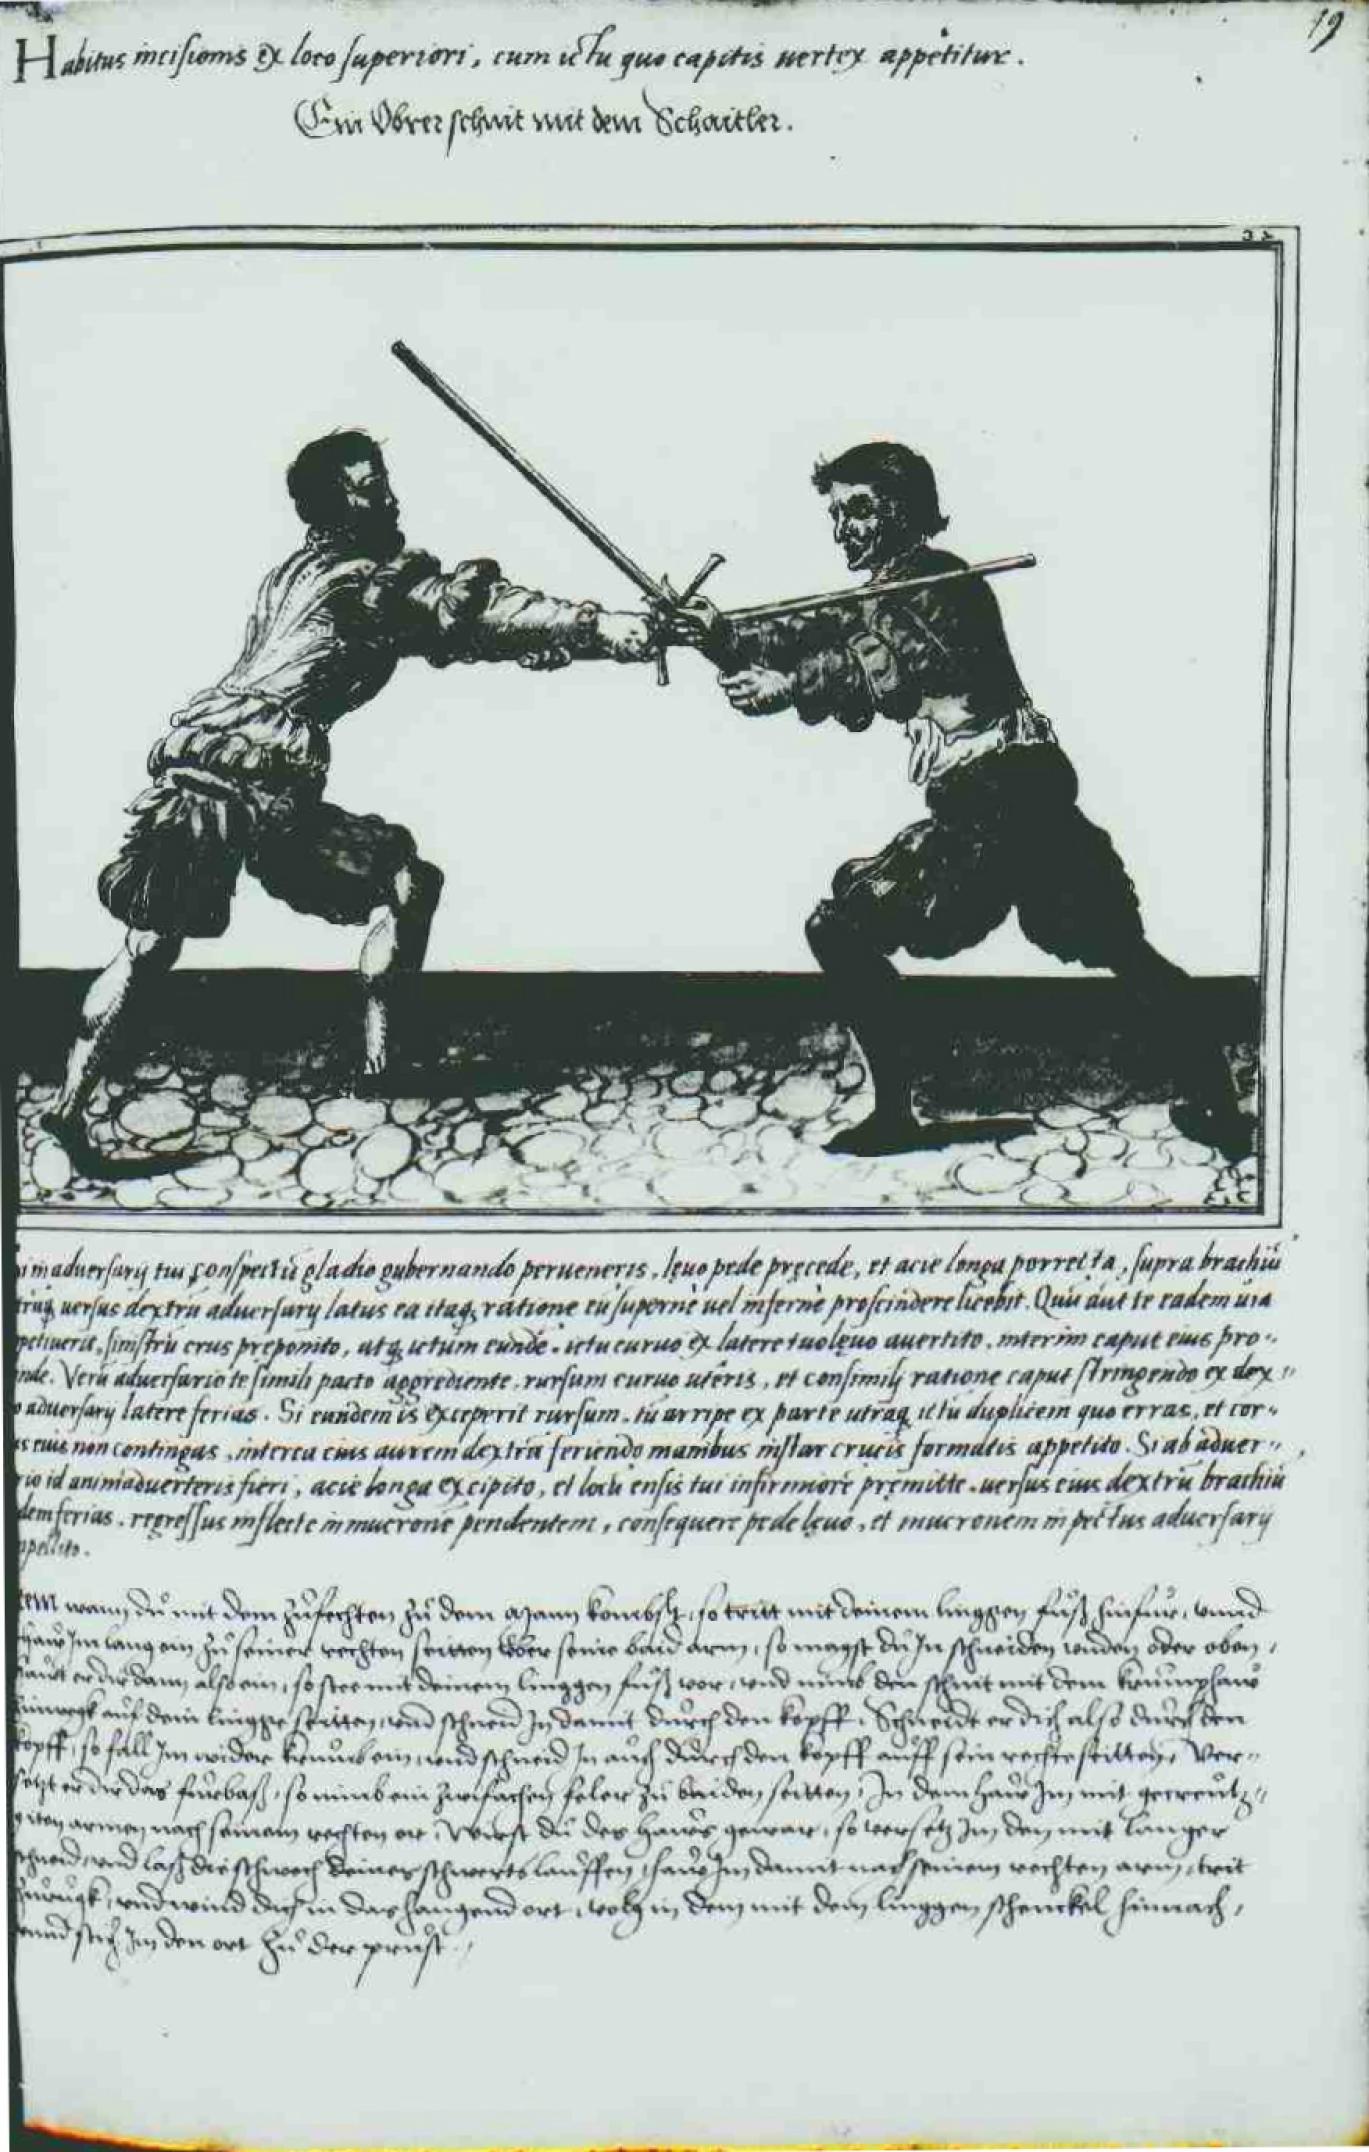 19
Habitus incisionis ex loco superiori, cum ictu quo capitis vertex appetitur.
Ein Obrer schnit mit dem Schaitler.
32
in adversarij tui conspectũ gladio gubernando perveneris, levo pede precede, et acie longa porrecta, supra brachiũ
versus dextrũ adversarij latus ea itaq; ratione eũ superne vel inferne proscindere licebit. Qui aut te eadem via
petiverit, sinistrũ crus preponito, atq; ictum eundẽ ictu curvo ex latere tuo levo avertito, interim caput eius pro-
inde. Verũ adversario te simili pacto aggrediente, rursum curvo uteris, et consimili ratione caput stringendo ex dex-
o adversarij latere ferias. Si eundem is exceperit rursum, tũ arripe ex parte utraq; ictũ duplicem quo erras, et cor-
us eius non contingas, interea eius aurem dextrã feriendo manibus instar crucis formatis appetito. Si ab adver-
rio id animadverteris fieri, acie longa excipito, et locũ ensis tui infirmiorẽ premitte, versus eius dextrũ brachiũ
dem ferias, regressus inflecte in mucronẽ pendentem, consequere pede levo, et mucronem in pectus adversarij
appellito.
tem wann du mit dem zufechten zu dem Mann kombst, so tritt mit deinem linggen fuß hinfur, unnd
haw Im lang ein zu seiner rechten seitten uber seine baid arm, so magst du In schneiden unden oder oben,
hawt er dir dann also ein, so stee mit deinem linggen fuß vor, und nimb den schnit mit dem krumphaw
hinwegk auf dein lingge seitten, und schneid In damit durch den kopff, Schneidt er dich also durch den
kopff, so fall Im wider krumb ein, und schneid In auch durch den kopff auff sein rechte seitten, Ver-
setzt er dir das furbaß, so nimb ein zwifachen feler zu baiden seitten, In dem haw Im mit gecreutz-
giten armen nach seinem rechten or, Wirst du des haws gewar, so versetz Im den mit langer
schneid, und laß die schwech deines schwerts lauffen, haw Im damit nach seinem rechten arm, trit
zurugk, und wind dich in das hangend ort, volg in dem mit dem linggen schenckel hinnach,
unnd stich Im den ort zu der prust.